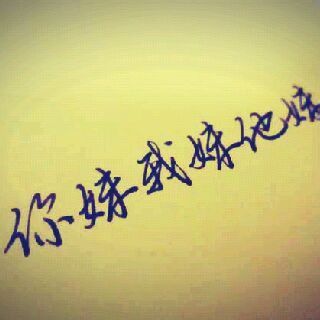 你妹我妹他妹